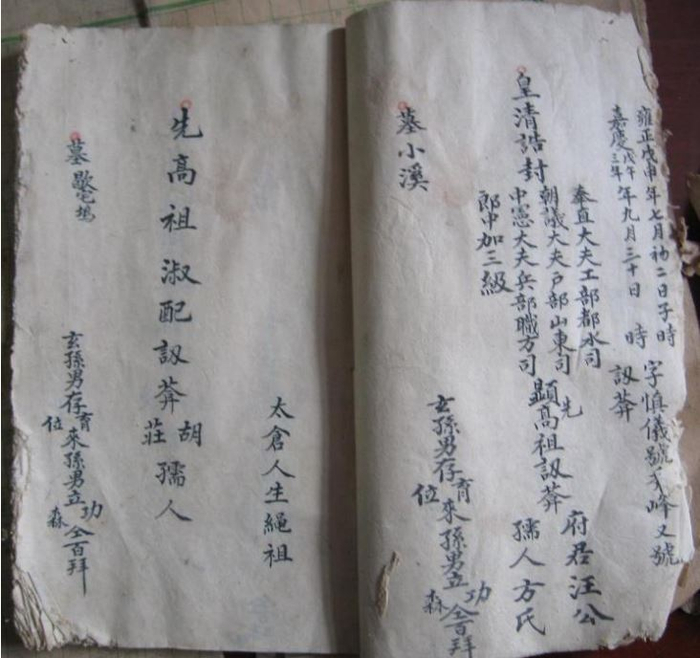 雍正戊申年七月初二日子時 字慎儀號秀峰又號
嘉慶戊午三年年九月三十日 時 訒葊
奉直大夫工部都水司
皇清誥封 朝議大夫戶部山東司
中憲大夫兵部職方司
郎中加三級
先顯高祖訒葊 府君汪公 孺人方氏
墓小溪
玄孫男存育位來孫男立功森仝百拜
太倉人生繩祖
先高祖淑配訒葊胡莊孺人
墓 塢
玄孫男存育位來孫男立功森仝百拜